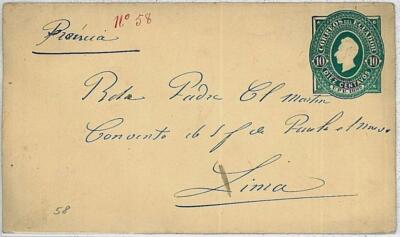 Nº 58
CORREOS DEL ECUADOR
10 10
DIEZ CENTAVOS
U.P.U.
Padre El Martin
Convento de S. f. de Paula el nuevo
Lima
58